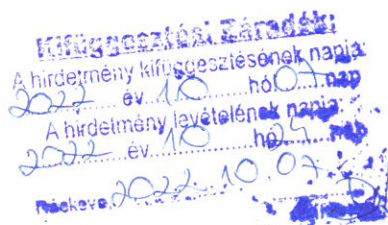 Kifüggesztési Záradék:
A hirdetmény kifüggesztésének napja:
2022 év 10 hó 07 nap
A hirdetmény levételének napja:
2022 év 10 hó 24 nap
Ráckeve, 2022. 10. 07